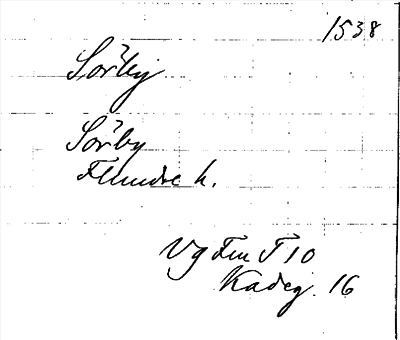 1538
Sörby
Sörby
Flundre h.
Vg Fm T 10
Kadeg. 16